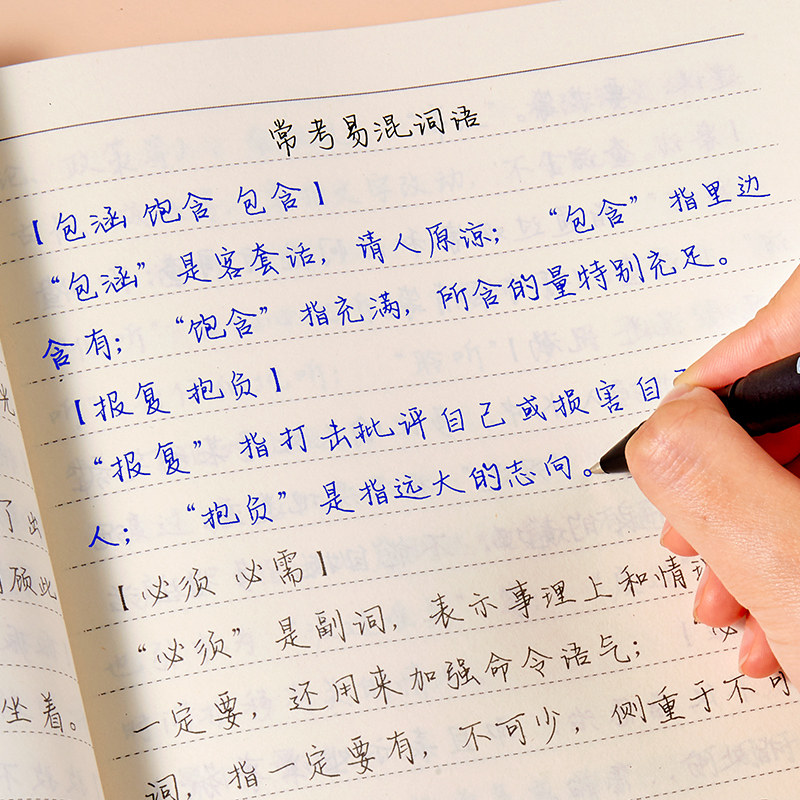 常考易混词语
【包涵 饱含 包含】
“包涵”是客套话，请人原谅；“包含”指里边
含有；“饱含”指充满，所含的量特别充足。
【报复 抱负】
“报复”指打击批评自己或损害自
人；“抱负”是指远大的志向。
【必须 必需】
“必须”是副词，表示事理上和情理
一定要，还用来加强命令语气；“必
词，指一定要有，不可少，侧重于不可
了出
顾此
坐着。